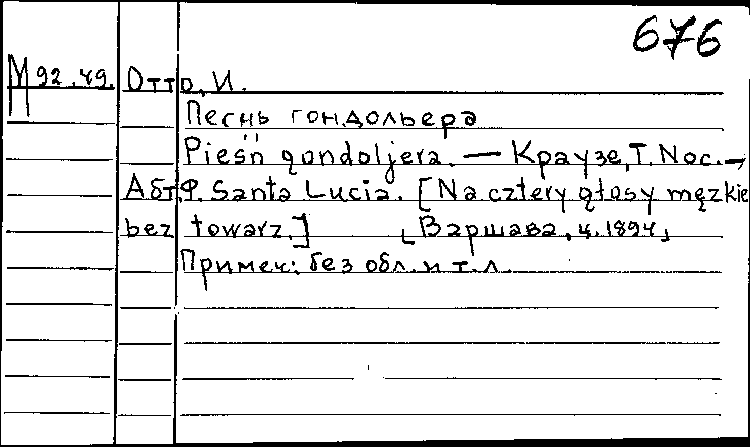 676
М 92.49. Отто, И.
Песнь гондольера
Pieśń gondoljera. — Краузе, Т. Noc. —
Абт, Ф. Santa Lucia. [Na cztery głosy męzkie
bez towarz.] [Варшава, ц. 1894]
Примеч: без обл. и т. л.